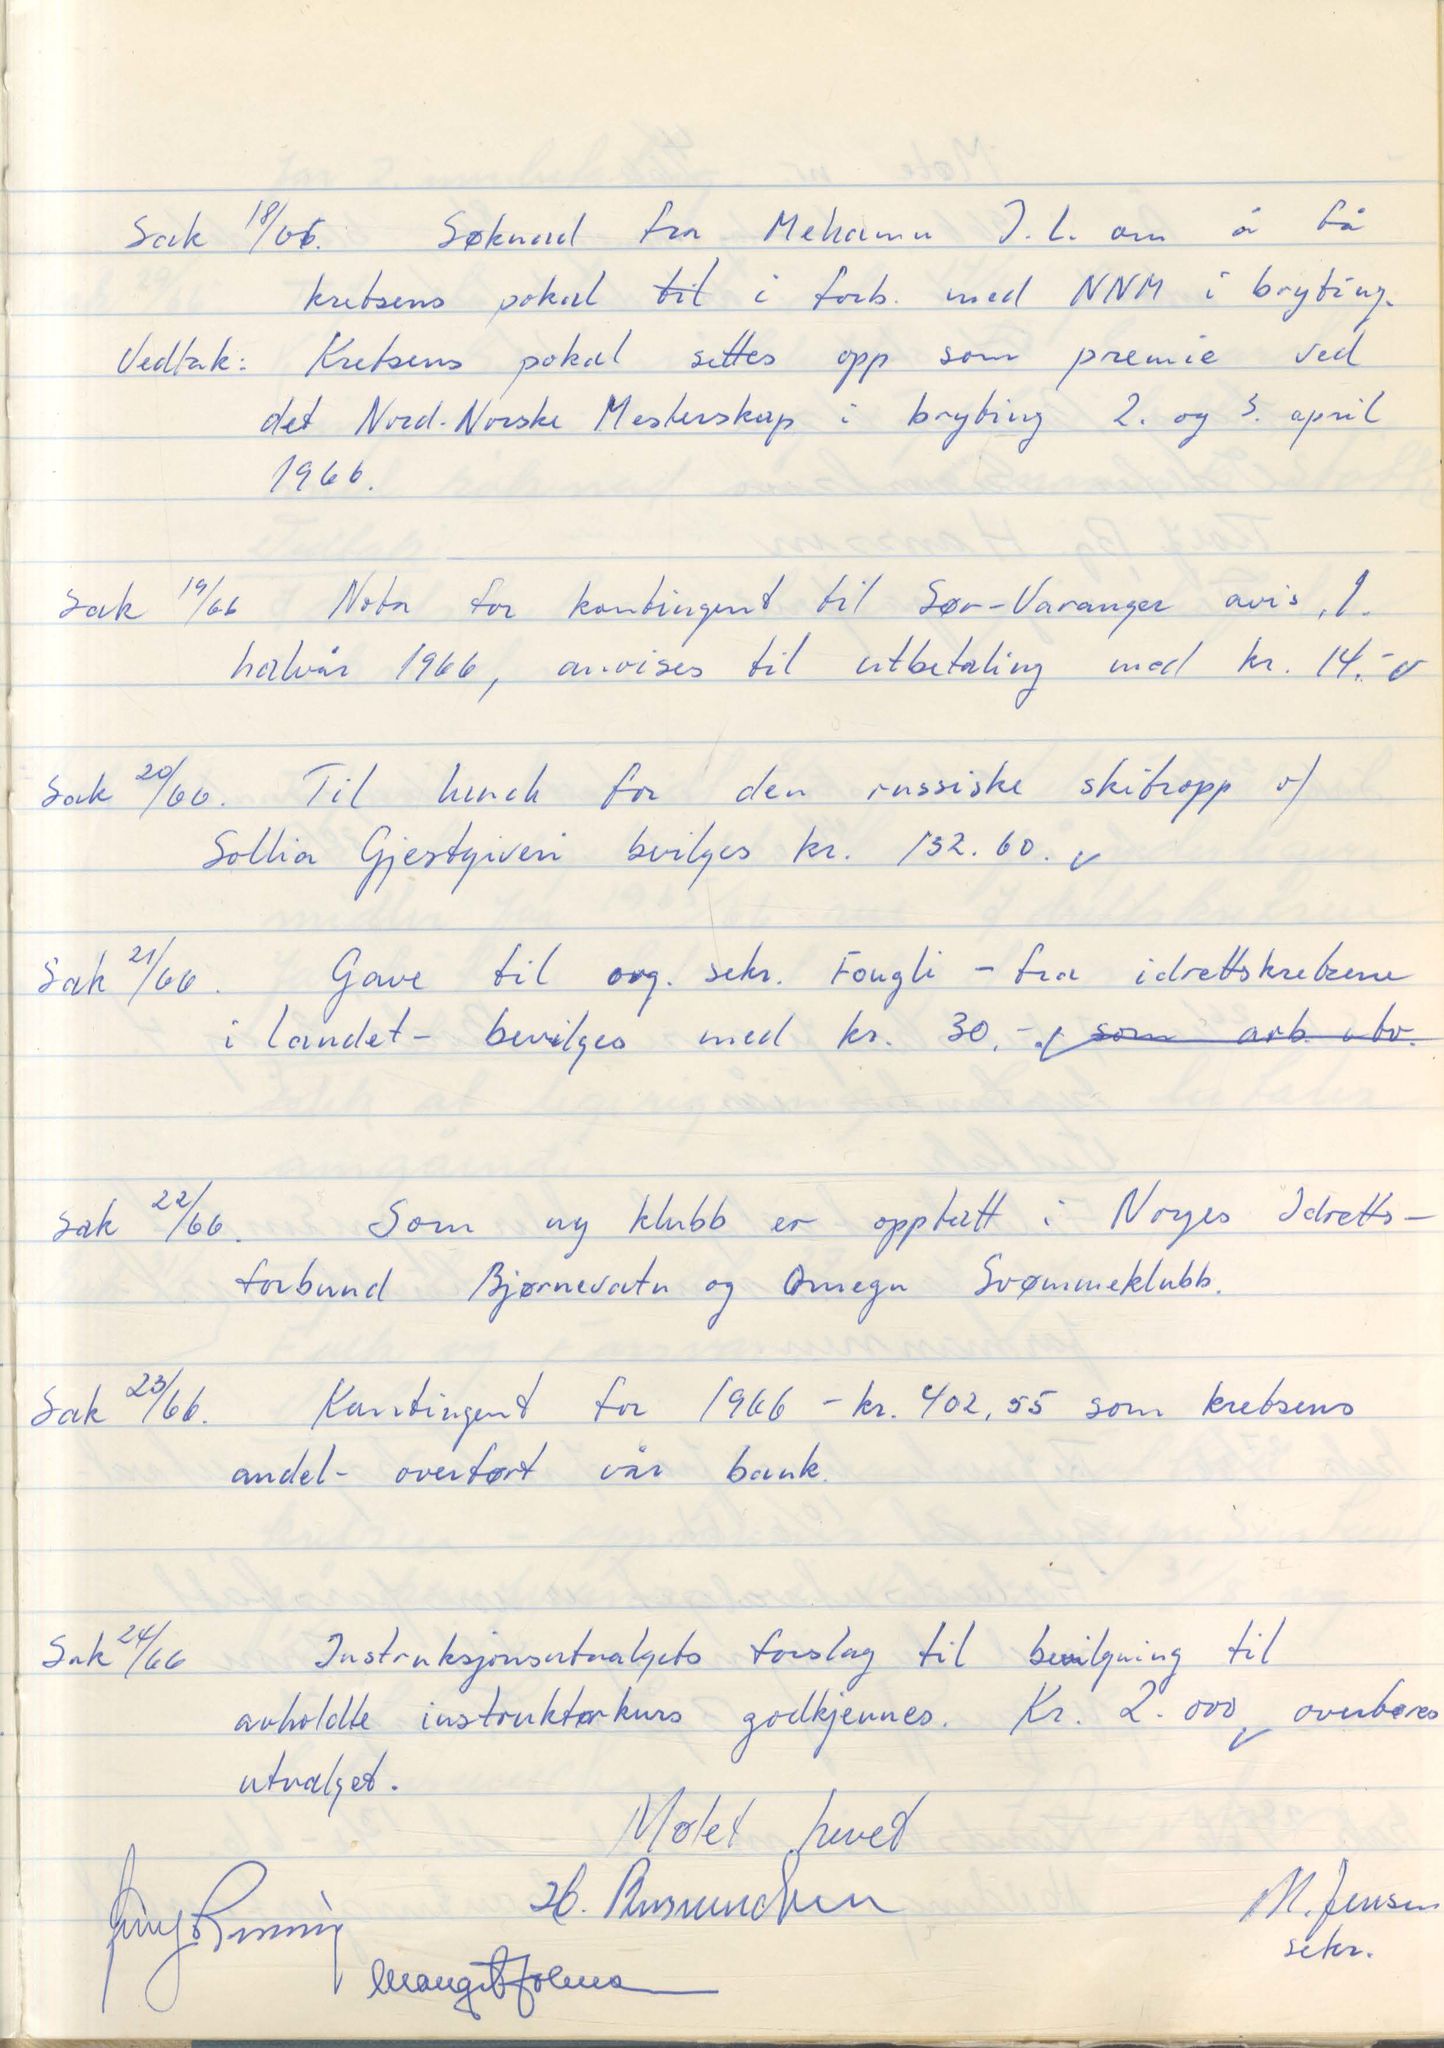 Sak 18/66. Søknad fra Mehamn I.L. om å få
kretsens pokal til i forb. med NNM i bryting.
Vedtak: Kretsens pokal settes opp som premie ved
det Nord-Norske Mesterskap i bryting 2. og 3. april
1966.
Sak 19/66 Nota for kontingent til Sør-Varanger avis, 1.
halvår 1966, anvises til utbetaling med kr. 14.-
Sak 20/66. Til lunch for den russiske skitropp v/
Sollia Gjestgiveri bevilges kr. 132.60.
Sak 21/66. Gave til org. sekr. Fougli - fra idrettskretsene
i landet - bevilges med kr. 30.- som arb. utv.
Sak 22/66. Som ny klubb er opptatt i Norges Idretts-
forbund Bjørnevatn og Omegn Svømmeklubb.
Sak 23/66. Kontingent for 1966 - kr. 402,55 som kretsens
andel - overført vår bank.
Sak 24/66 Instruksjonsutvalgets forslag til bevilgning til
avholdte instruktørkurs godkjennes. Kr. 2.000 overføres
utvalget.
Møtet hevet
H. Rasmussen
M. Jensen
sekr.